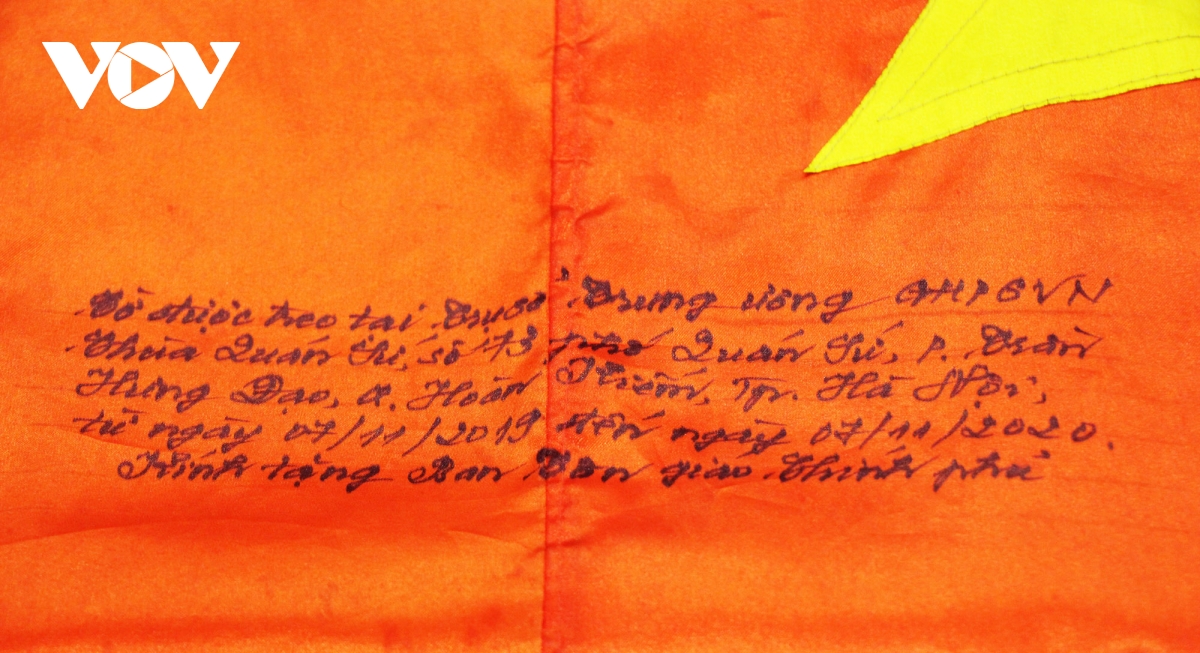 VOV
Cờ được treo tại Trụ sở Trung ương GHPGVN
Chùa Quán Sứ, số 73 phố Quán Sứ, P. Trần
Hưng Đạo, Q. Hoàn Kiếm, Tp. Hà Nội,
từ ngày 07/11/2019 đến ngày 07/11/2020.
Kính tặng Ban Tôn giáo Chính phủ